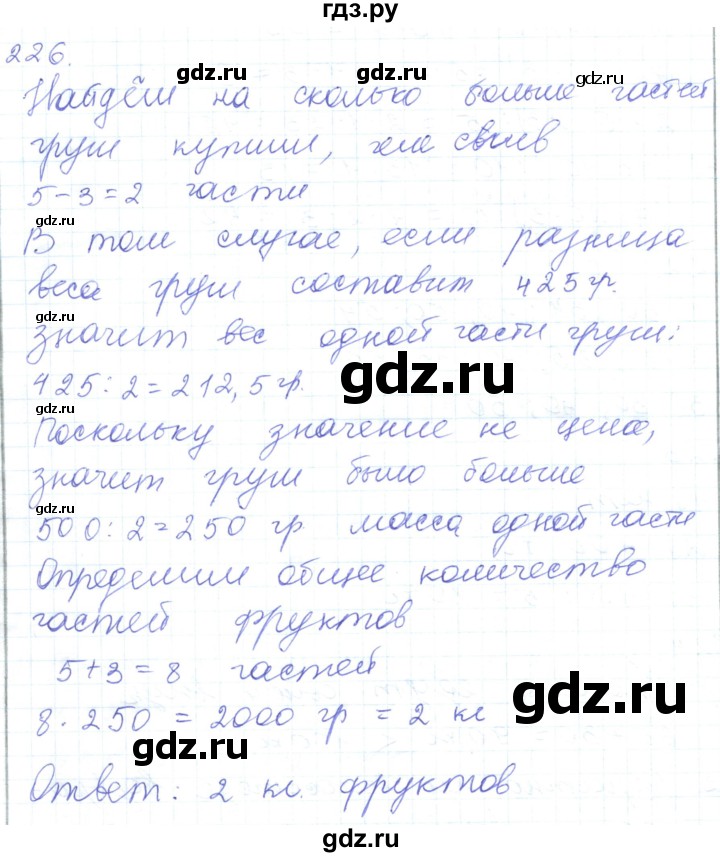 гдз.ру
226.
gdz.ru gdz.ru
Найдём на сколько больше частей
груш купили, чем слив
gdz.ru gdz.ru
5-3=2 части
gdz.ru
В том случае, если разница
веса груш составит 425 гр.
gdz.ru gdz.ru
значит вес одной части груш:
gdz.ru
425:2=212,5 гр.
gdz.ru
Поскольку значение не цело,
значит груш было больше
gdz.ru gdz.ru
500:2=250 гр. масса одной части
Определим общее количество
частей фруктов
gdz.ru gdz.ru
5+3=8 частей
gdz.ru
8·250=2000 гр = 2 кг
gdz.ru
Ответ: 2 кг. фруктов
gdz.ru
gdz.ru